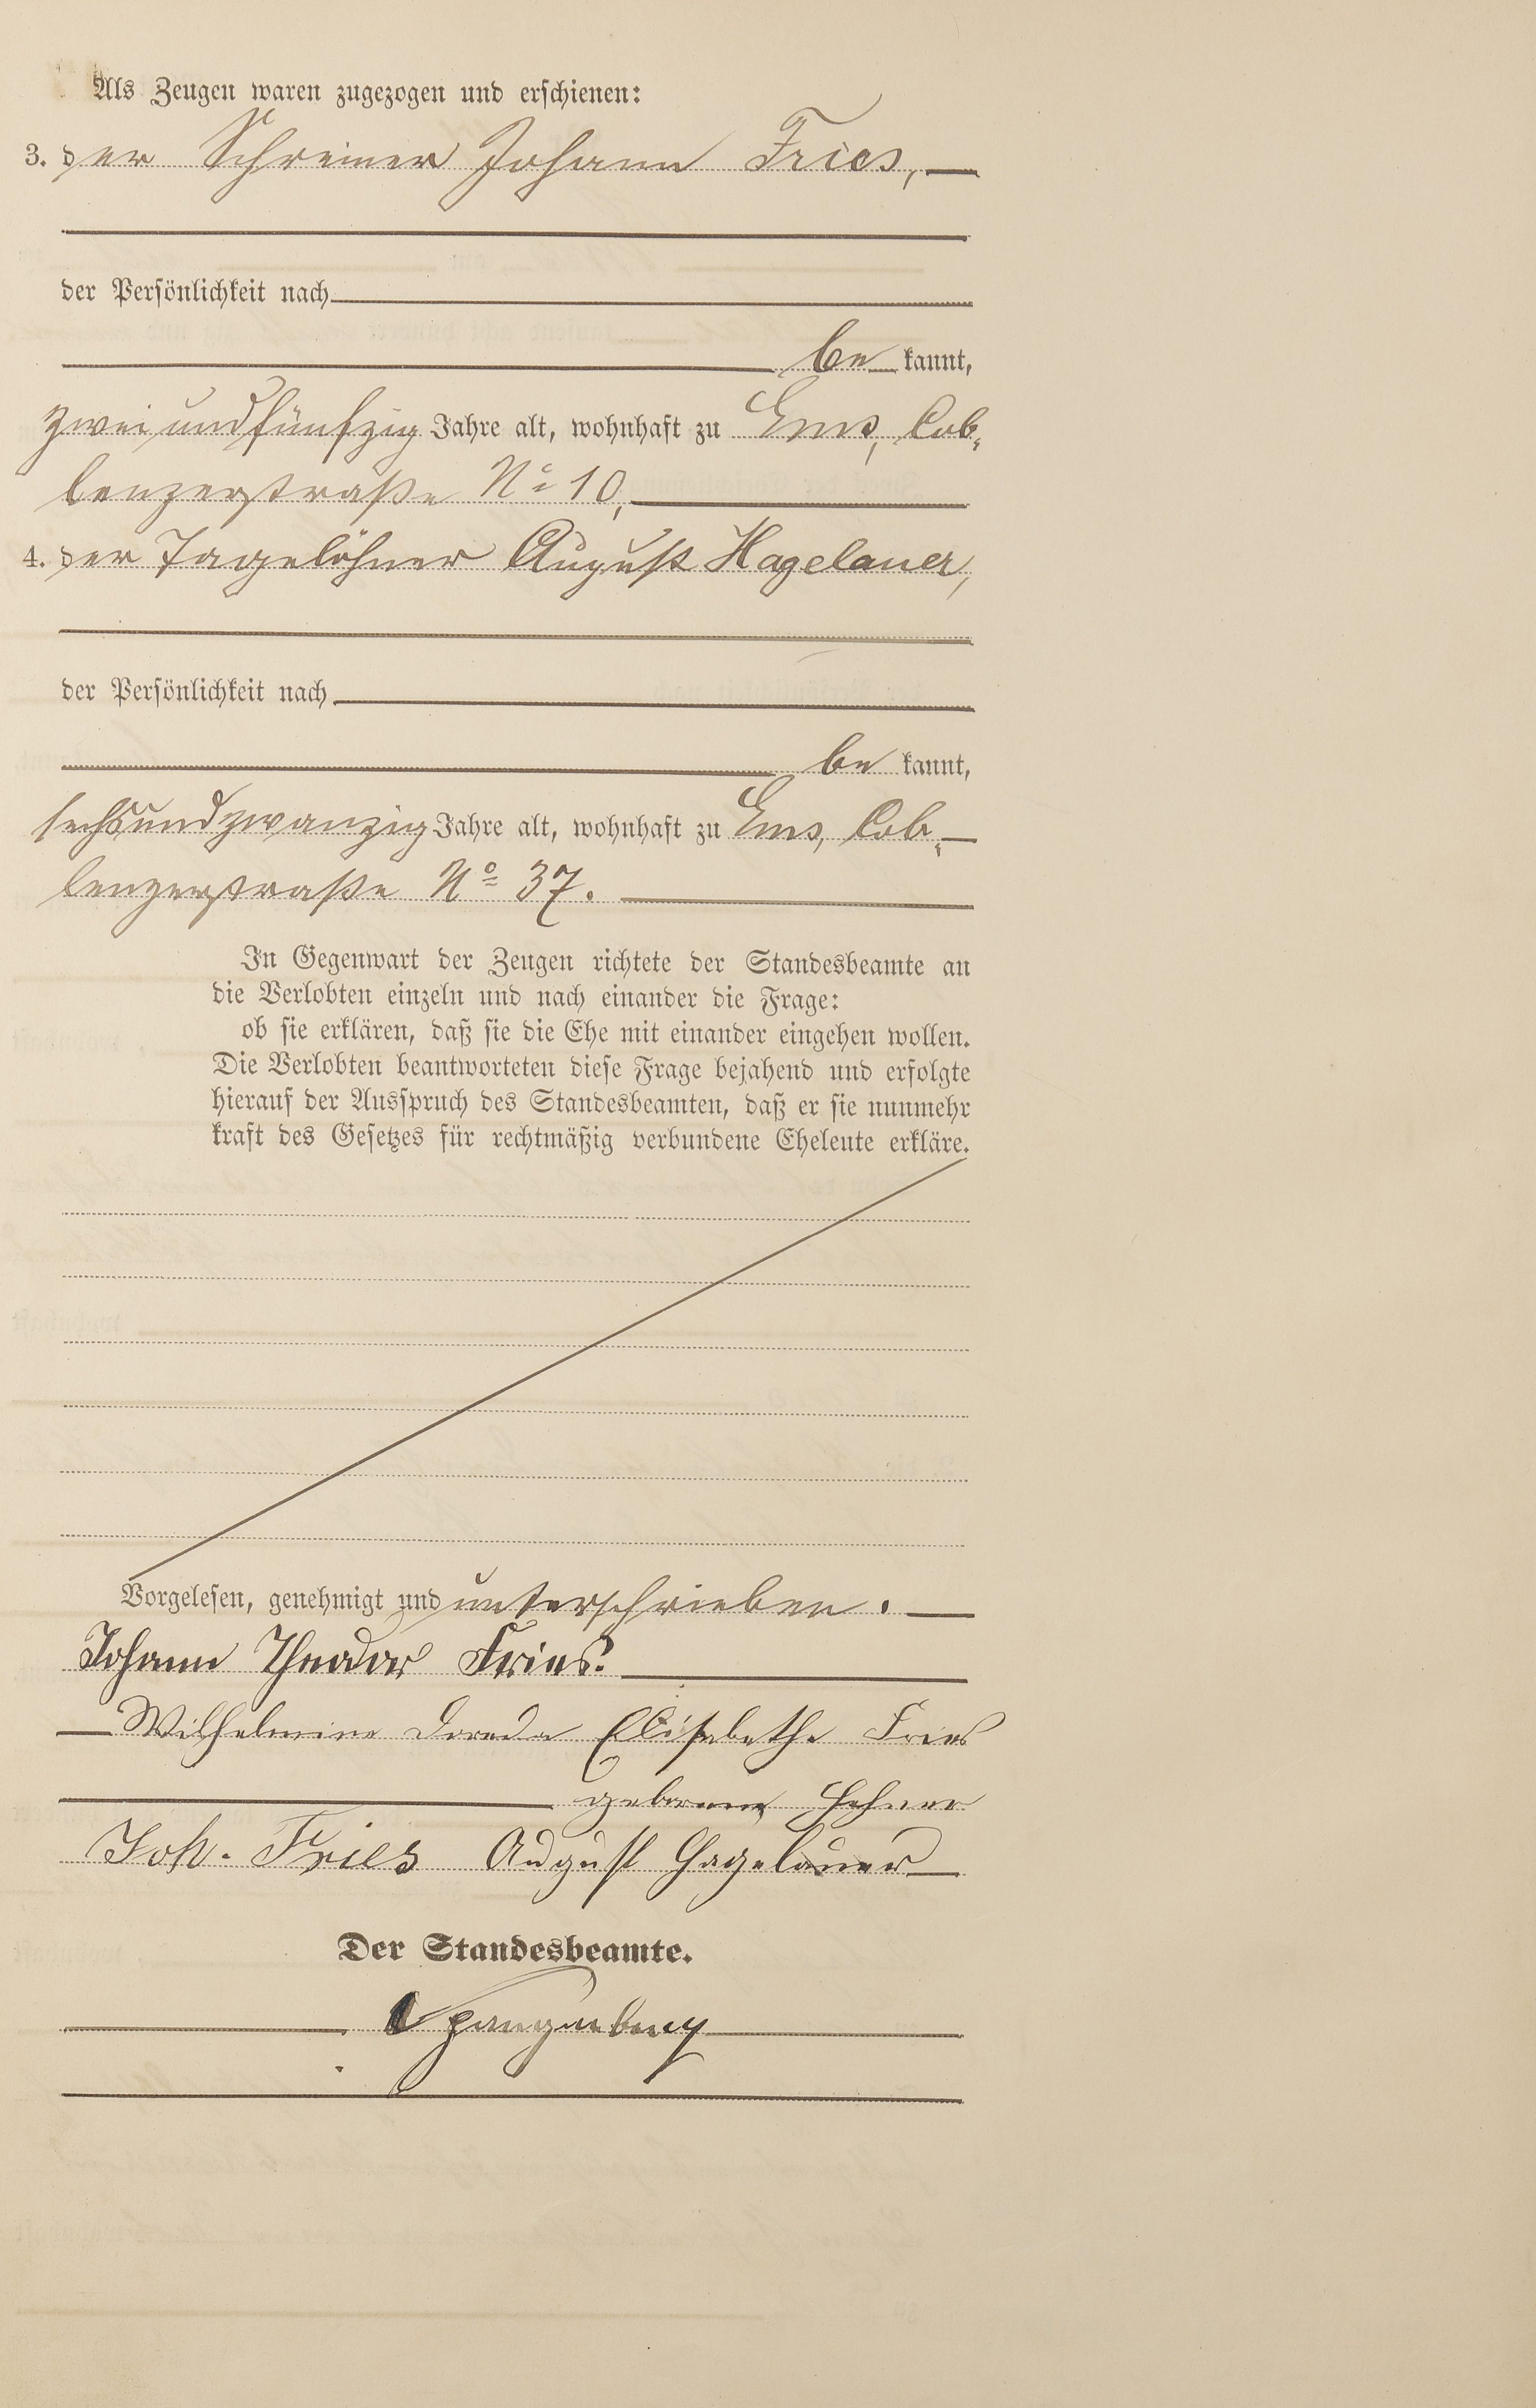 Als Zeugen waren zugezogen und erschienen:
3. der Schreiner Johann Fries,
der Persönlichkeit nach
be kannt,
zwei und fünfzig Jahre alt, wohnhaft zu Ems, Cob-
lenzerstraße No 10,
4. der Tagelöhner August Hagelauer,
der Persönlichkeit nach
be kannt,
sechsundzwanzig Jahre alt, wohnhaft zu Ems, Cob-
lenzerstraße No 37.
In Gegenwart der Zeugen richtete der Standesbeamte an
die Verlobten einzeln und nach einander die Frage:
ob sie erklären, daß sie die Ehe mit einander eingehen wollen.
Die Verlobten beantworteten diese Frage bejahend und erfolgte
hierauf der Ausspruch des Standesbeamten, daß er sie nunmehr
kraft des Gesetzes für rechtmäßig verbundene Eheleute erkläre.
Vorgelesen, genehmigt und unterschrieben.
Johann Theodor Fries.
Wilhelmine Elisabethe Fries
geborene Hehner
Joh. Fries August Hagelauer
Der Standesbeamte.
Spangenberg